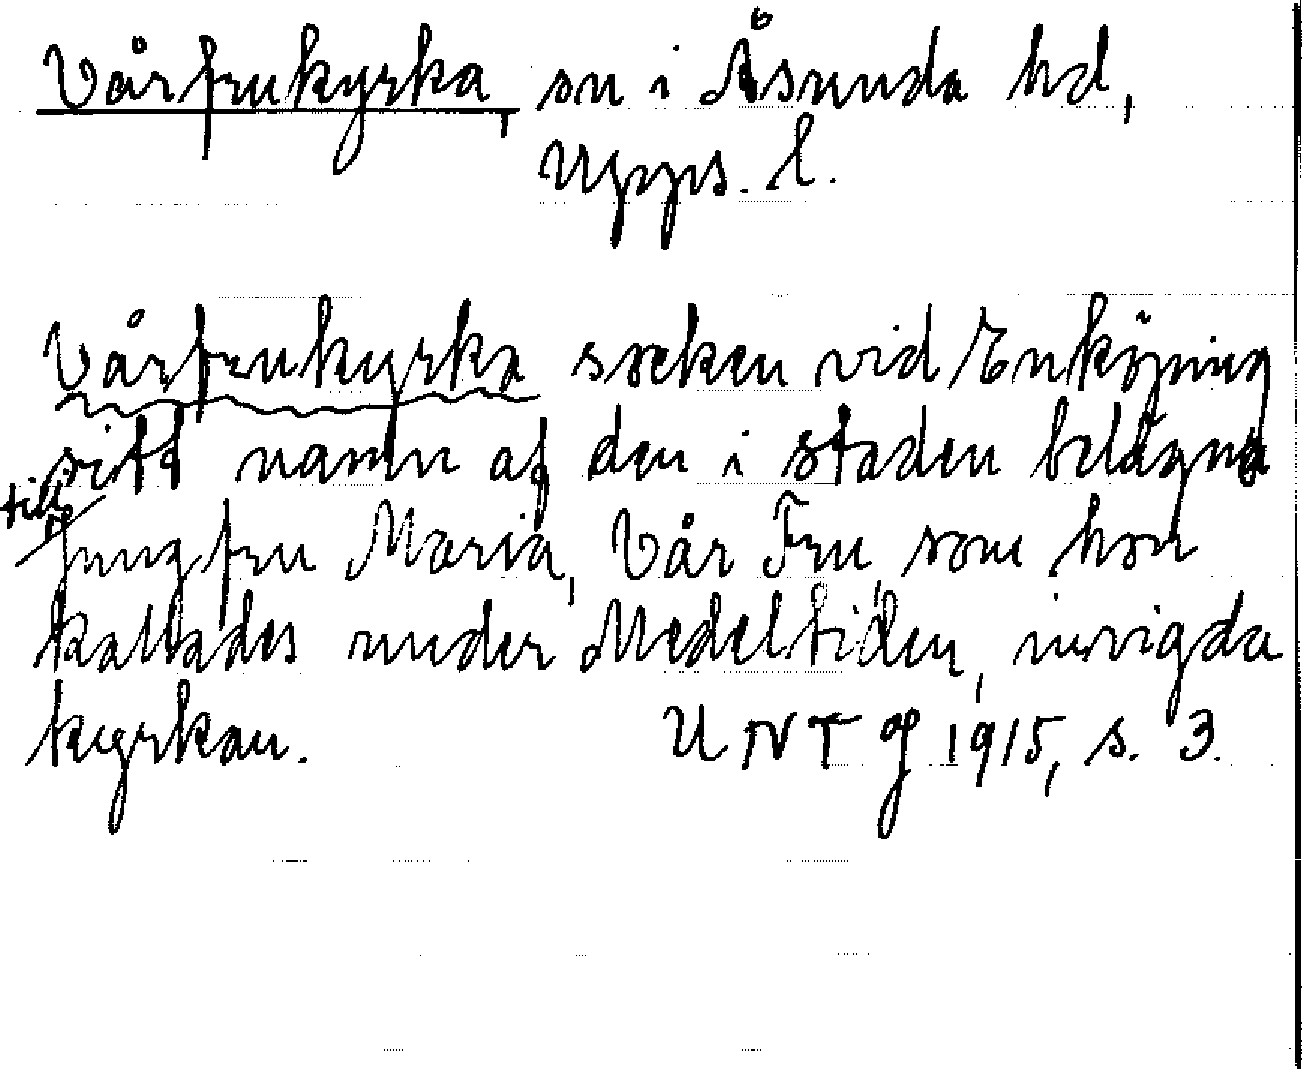 Vårfrukyrka, sn i Åsunda hd,
Upps. l.
Vårfrukyrka socken vid Enköping
sitt namn af den i staden belägna
till
Jungfru Maria, Vår Fru, som hon
kallades under Medeltiden, invigda
kyrkan. UNT 1915, s. 3.